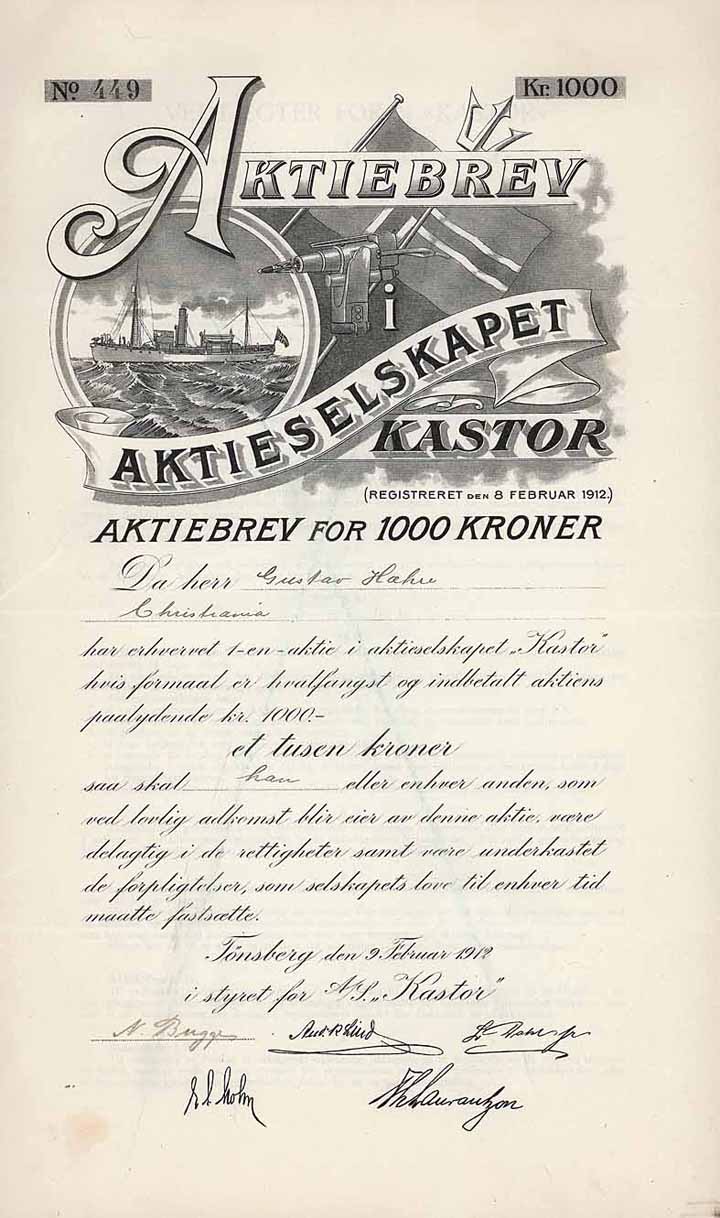 No 449
Kr. 1000
AKTIEBREV
i
AKTIESELSKAPET
KASTOR
(REGISTRERET DEN 8 FEBRUAR 1912.)
AKTIEBREV FOR 1000 KRONER
Da herr Gustav
Christiania
har erhvervet 1-en-aktie i aktieselskapet „Kastor"
hvis formaal er hvalfangst og indbetalt aktiens
paalydende kr. 1000.-
et tusen kroner
saa skal han eller enhver anden, som
ved lovlig adkomst blir eier av denne aktie, være
delagtig i de rettigheter samt være underkastet
de forpligtelser, som selskapets love til enhver tid
maatte fastsætte.
Tönsberg den 9 Februar 1912
i styret for A/S. „Kastor"
N. Bugge